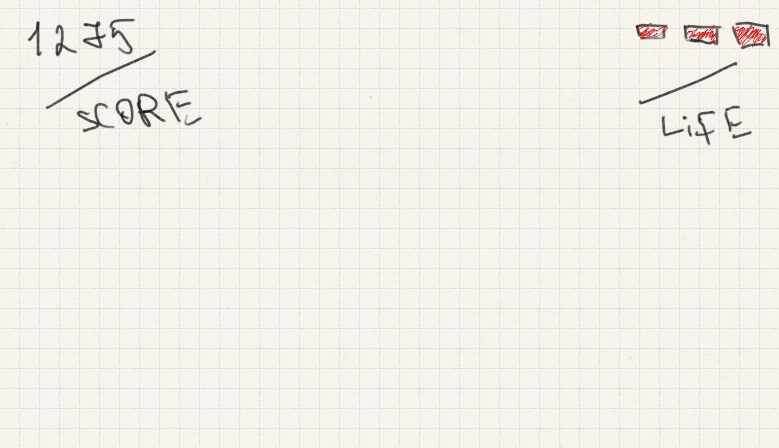 1275
SCORE
LiFE